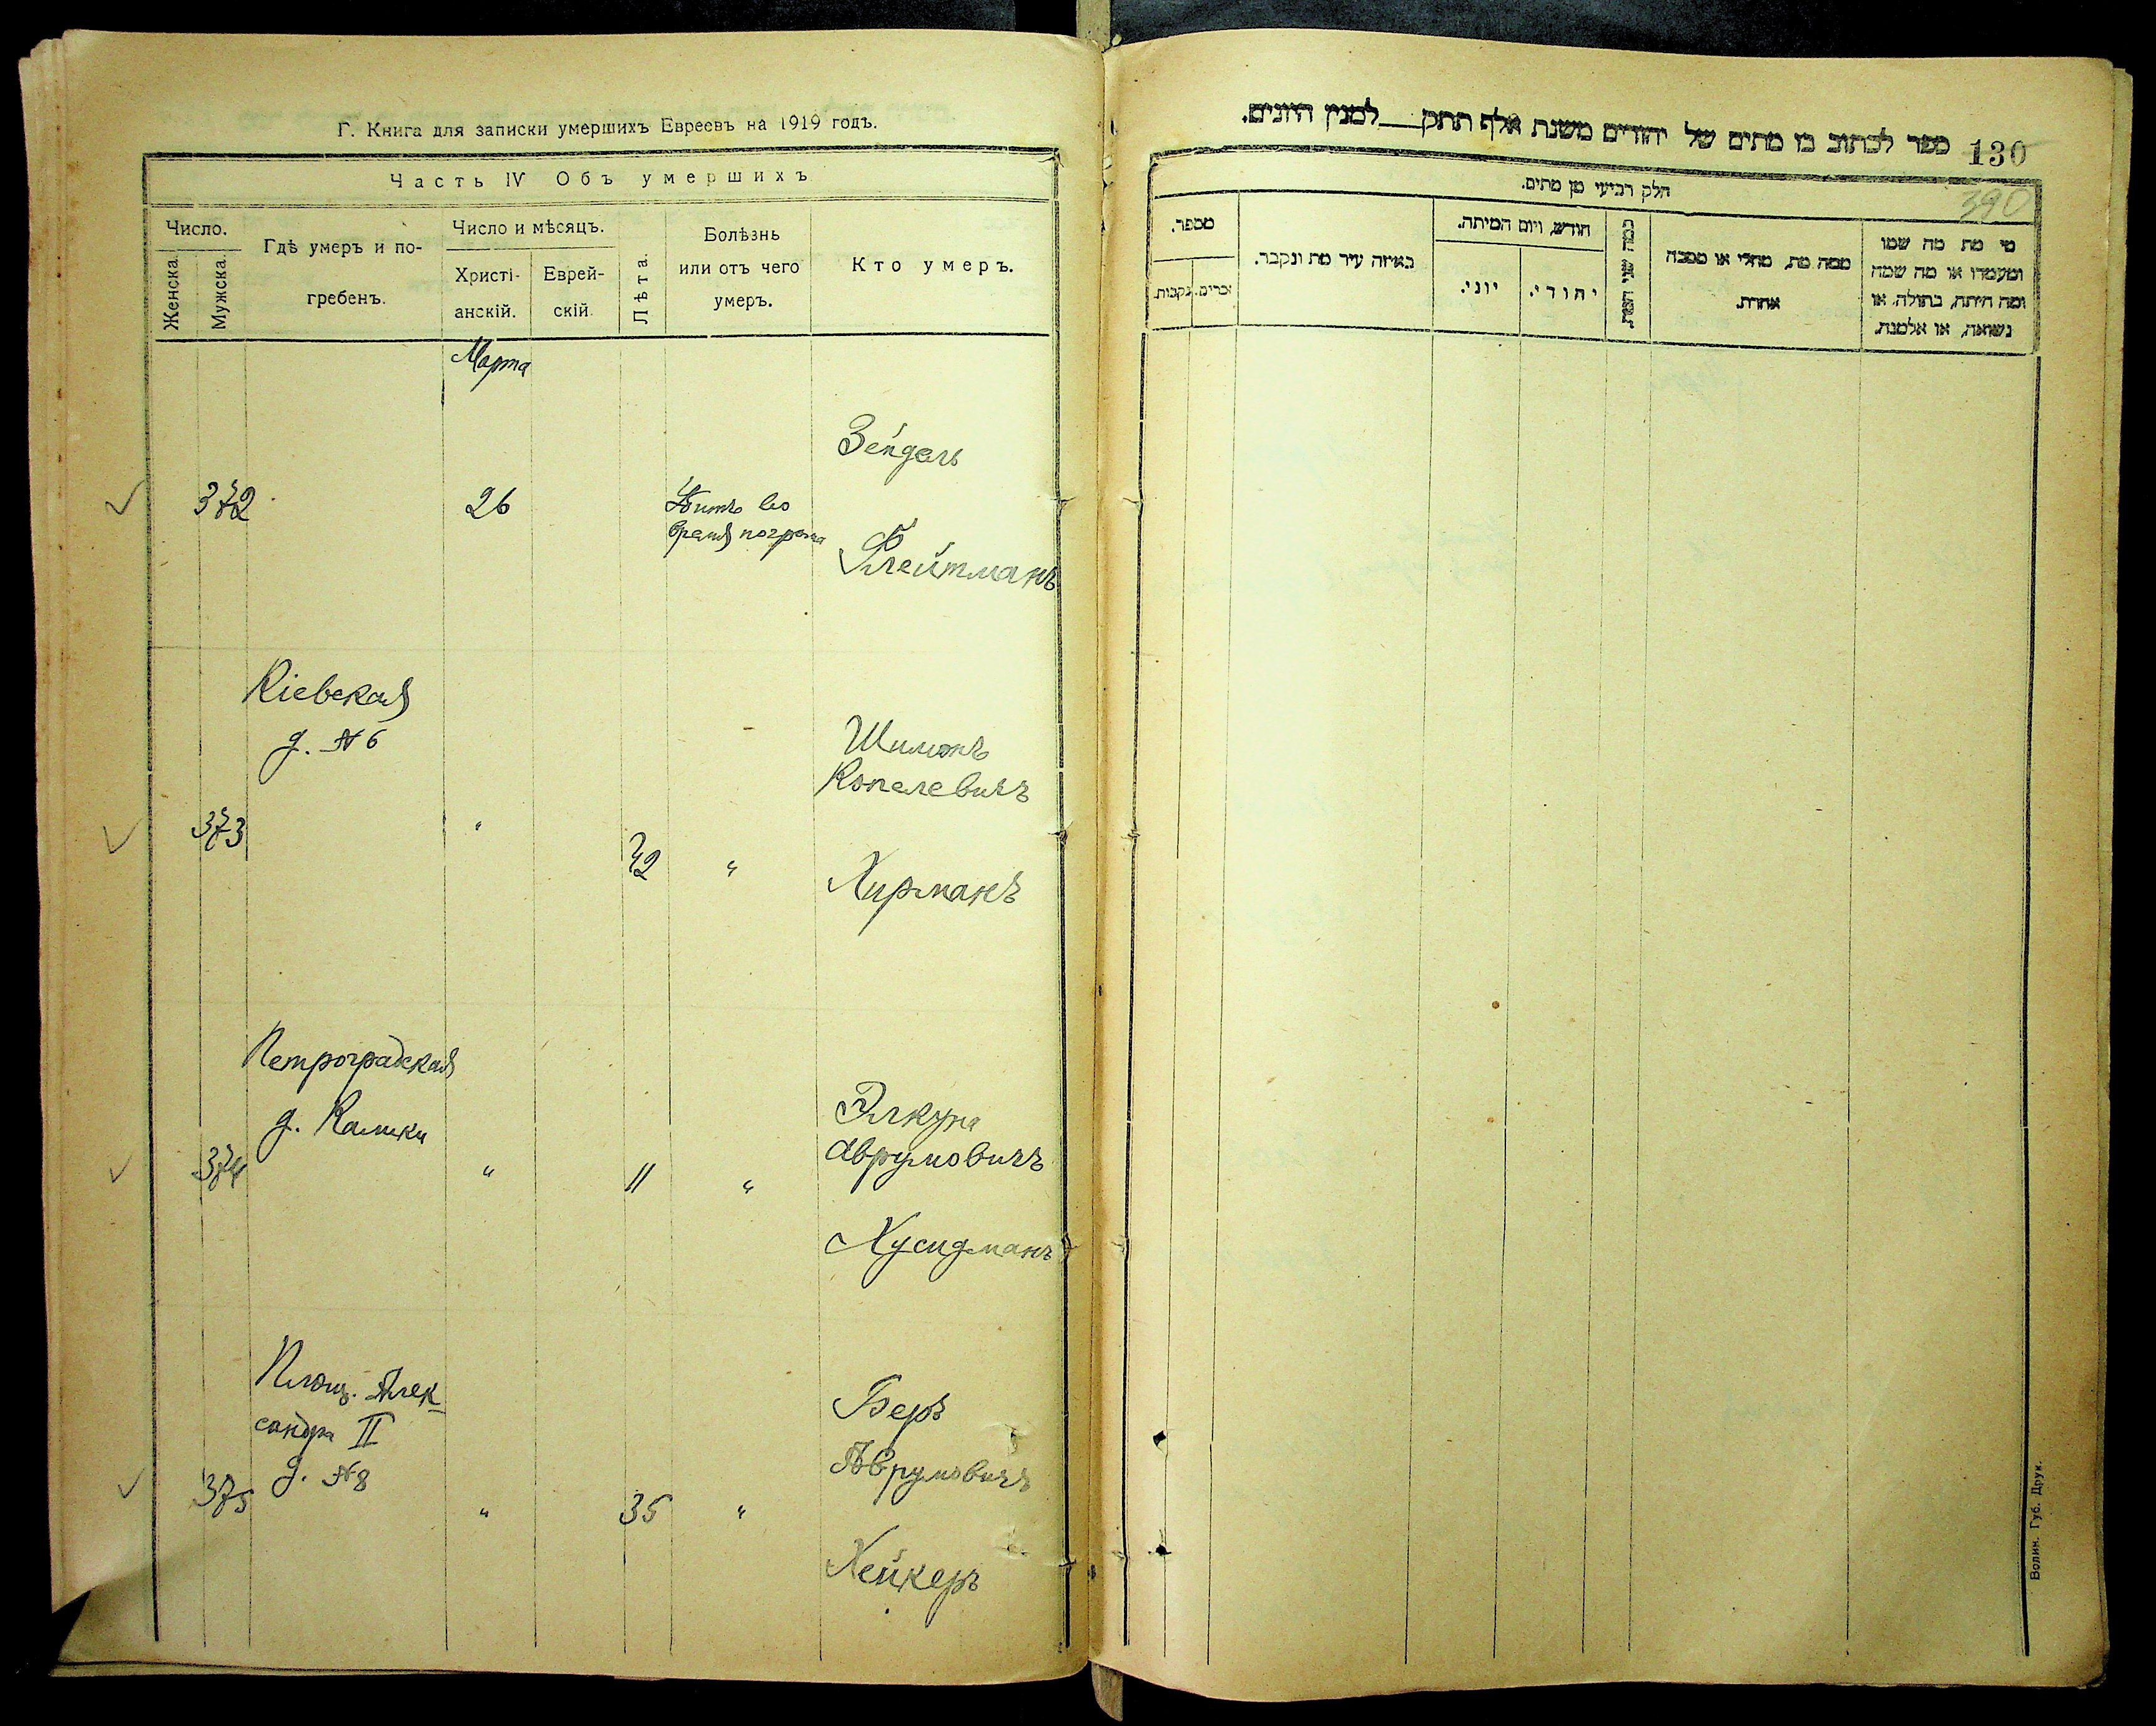 Г. Книга для записки умершихъ Евреевъ на 1919 годъ.
Часть IV Объ умершихъ
Число.
Женска.
Мужска.
Гдѣ умеръ и по-
гребенъ.
Число и мѣсяцъ.
Христі-
анскій.
Еврей-
скій.
Лѣта.
Болѣзнь
или отъ чего
умеръ.
Кто умеръ.
Марта
Зейдель
372
26
Убитъ во
время погрома
Флейтманъ
Кіевская
д. № 6
Шимонъ
Копелевичъ
373
"
42
"
Хирманъ
Петроградская
д.
Элкуна
Аврумовичъ
374
"
11
"
Хусидманъ
Площ. Алек-
сандра II
д. № 8
Беръ
Аврумовичъ
375
"
35
"
Хейкеръ
ספר לכתוב בו מתים של יהודים משנת אלף תתק למנין היונים.
130
390
חלק רביעי מן מתים.
מספר.
זכרים.
נקבות.
באיזה עיר מת ונקבר.
חודש, ויום המיתה.
יוני.
יהודי.
כמה שני המת.
ממה מת, מחלי או מסבה
אחרת.
מי מת מה שמו
ומעמדו או מה שמה
ומה היתה, בתולה, או
נשואה, או אלמנה.
Волин. Губ. Друк.